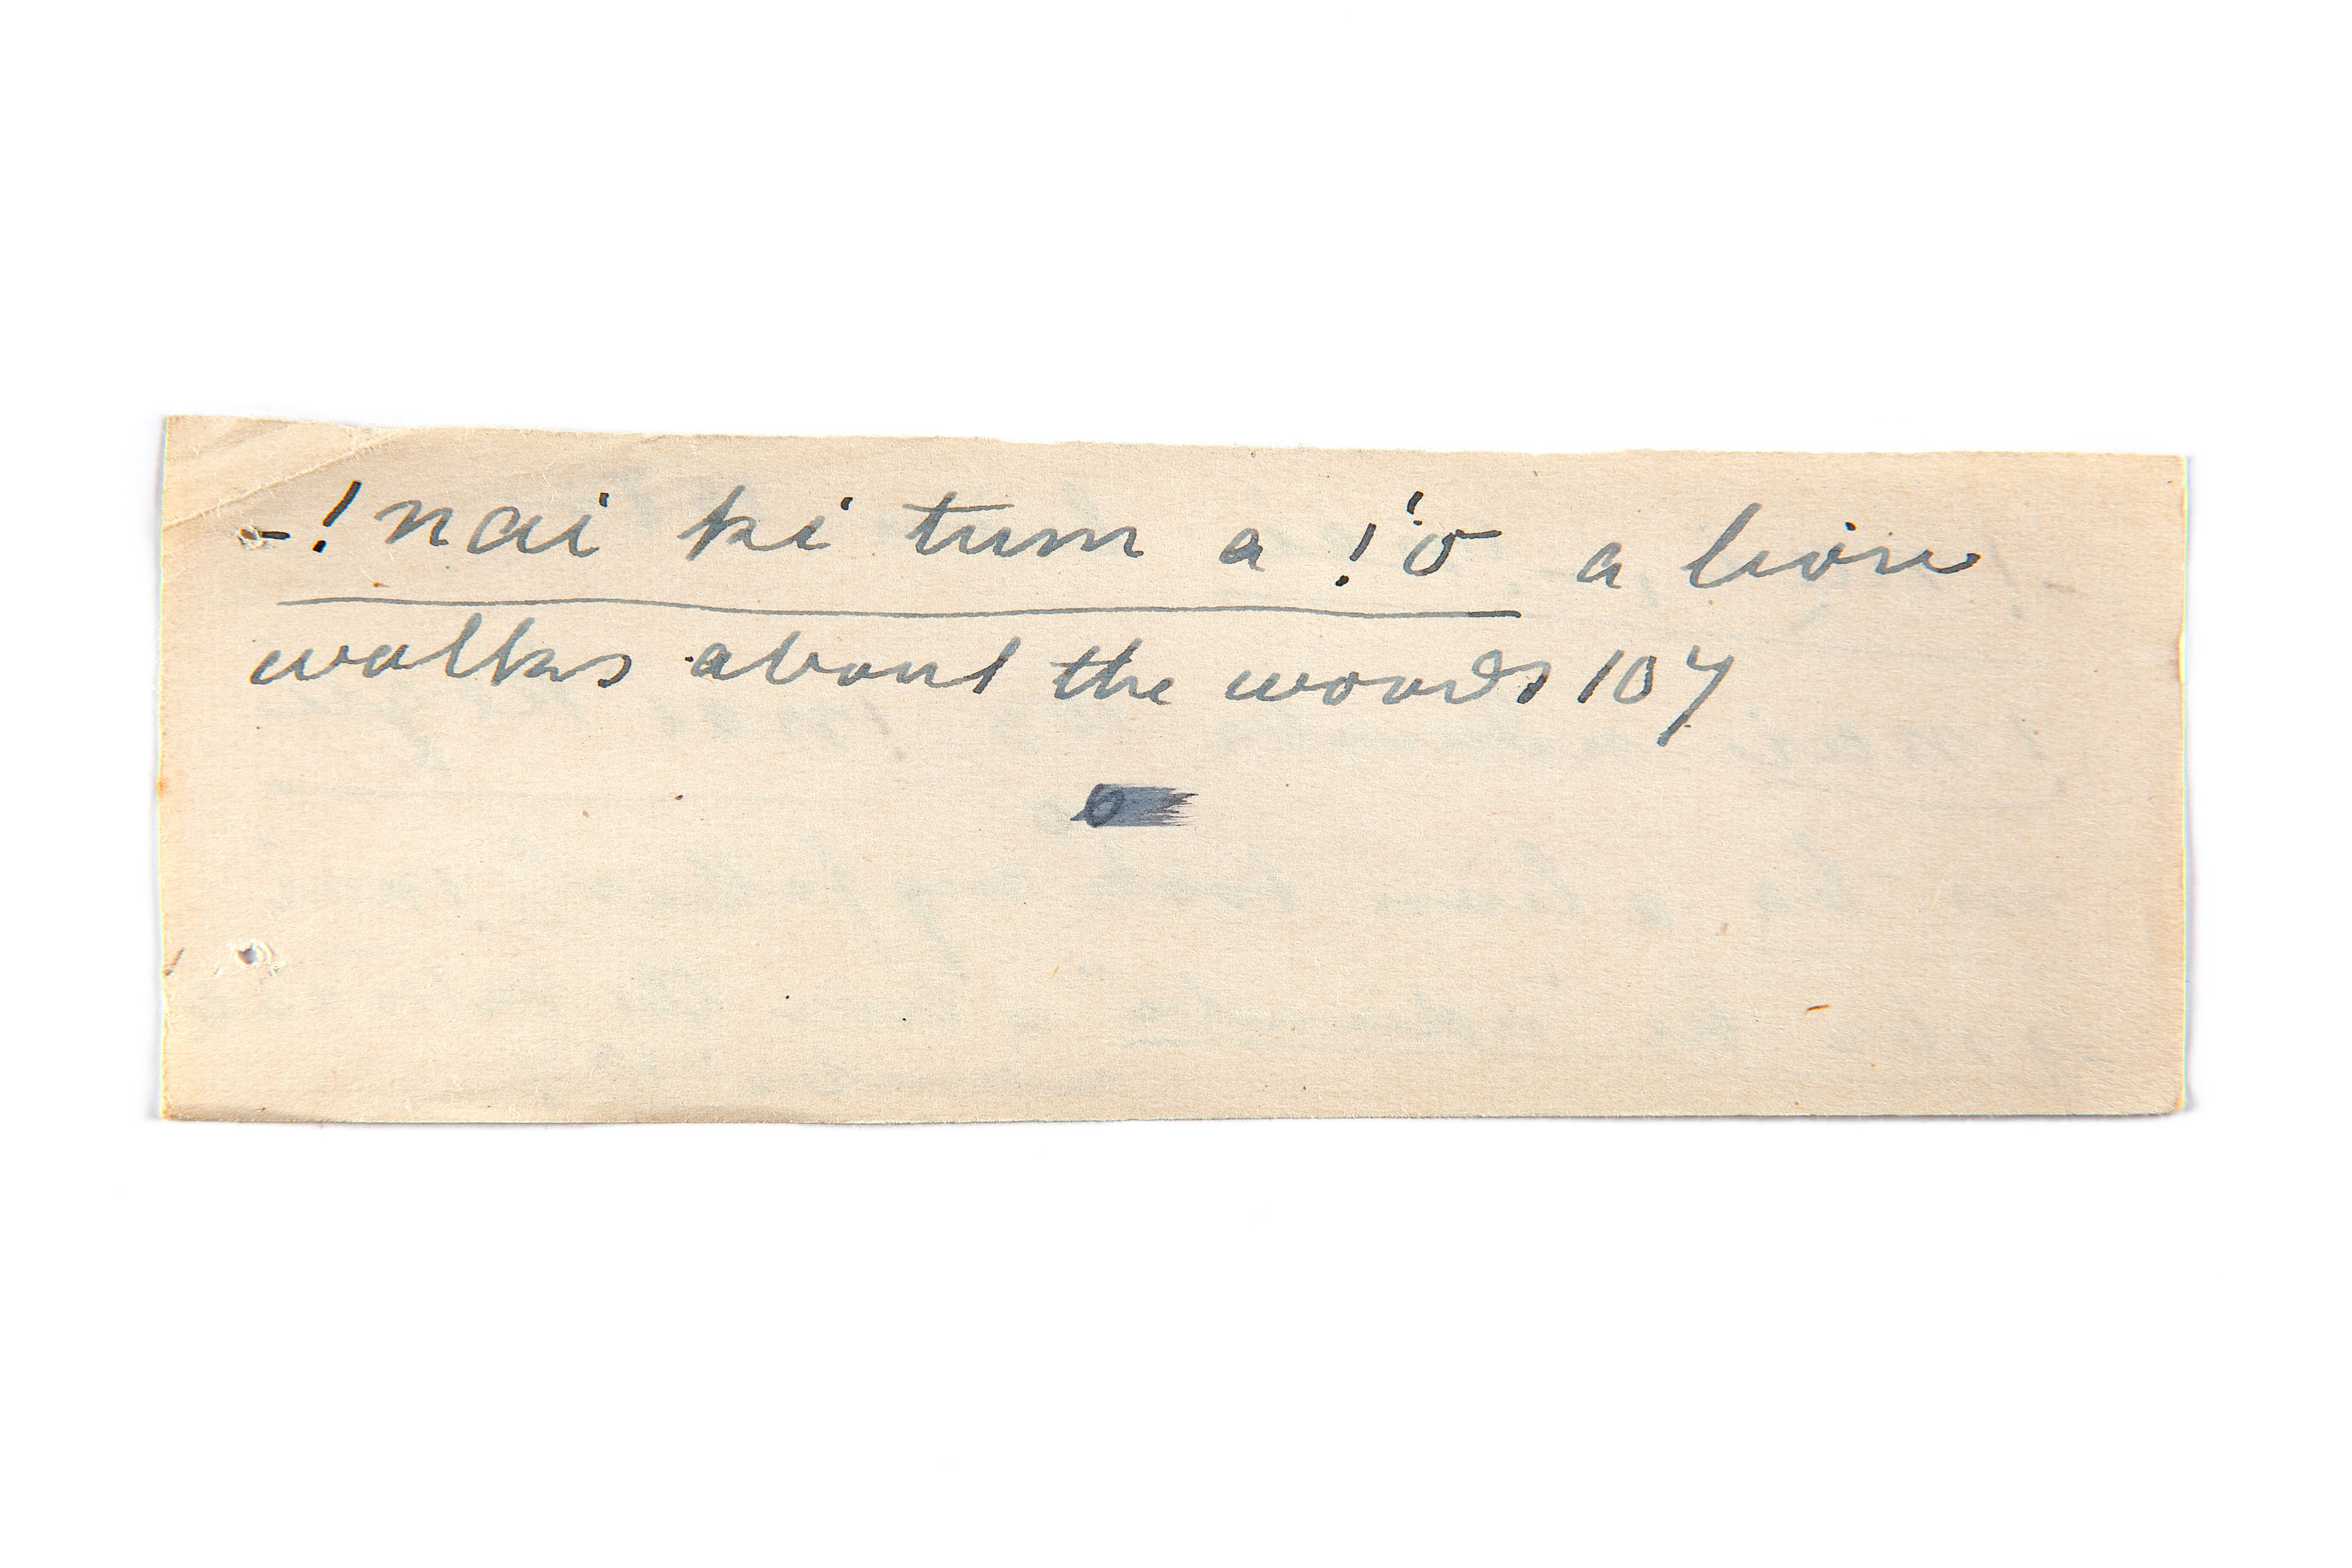 -!nai ki tum a !'o a lion
walks about the woods 107